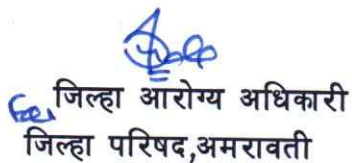 जिल्हा आरोग्य अधिकारी
जिल्हा परिषद,अमरावती